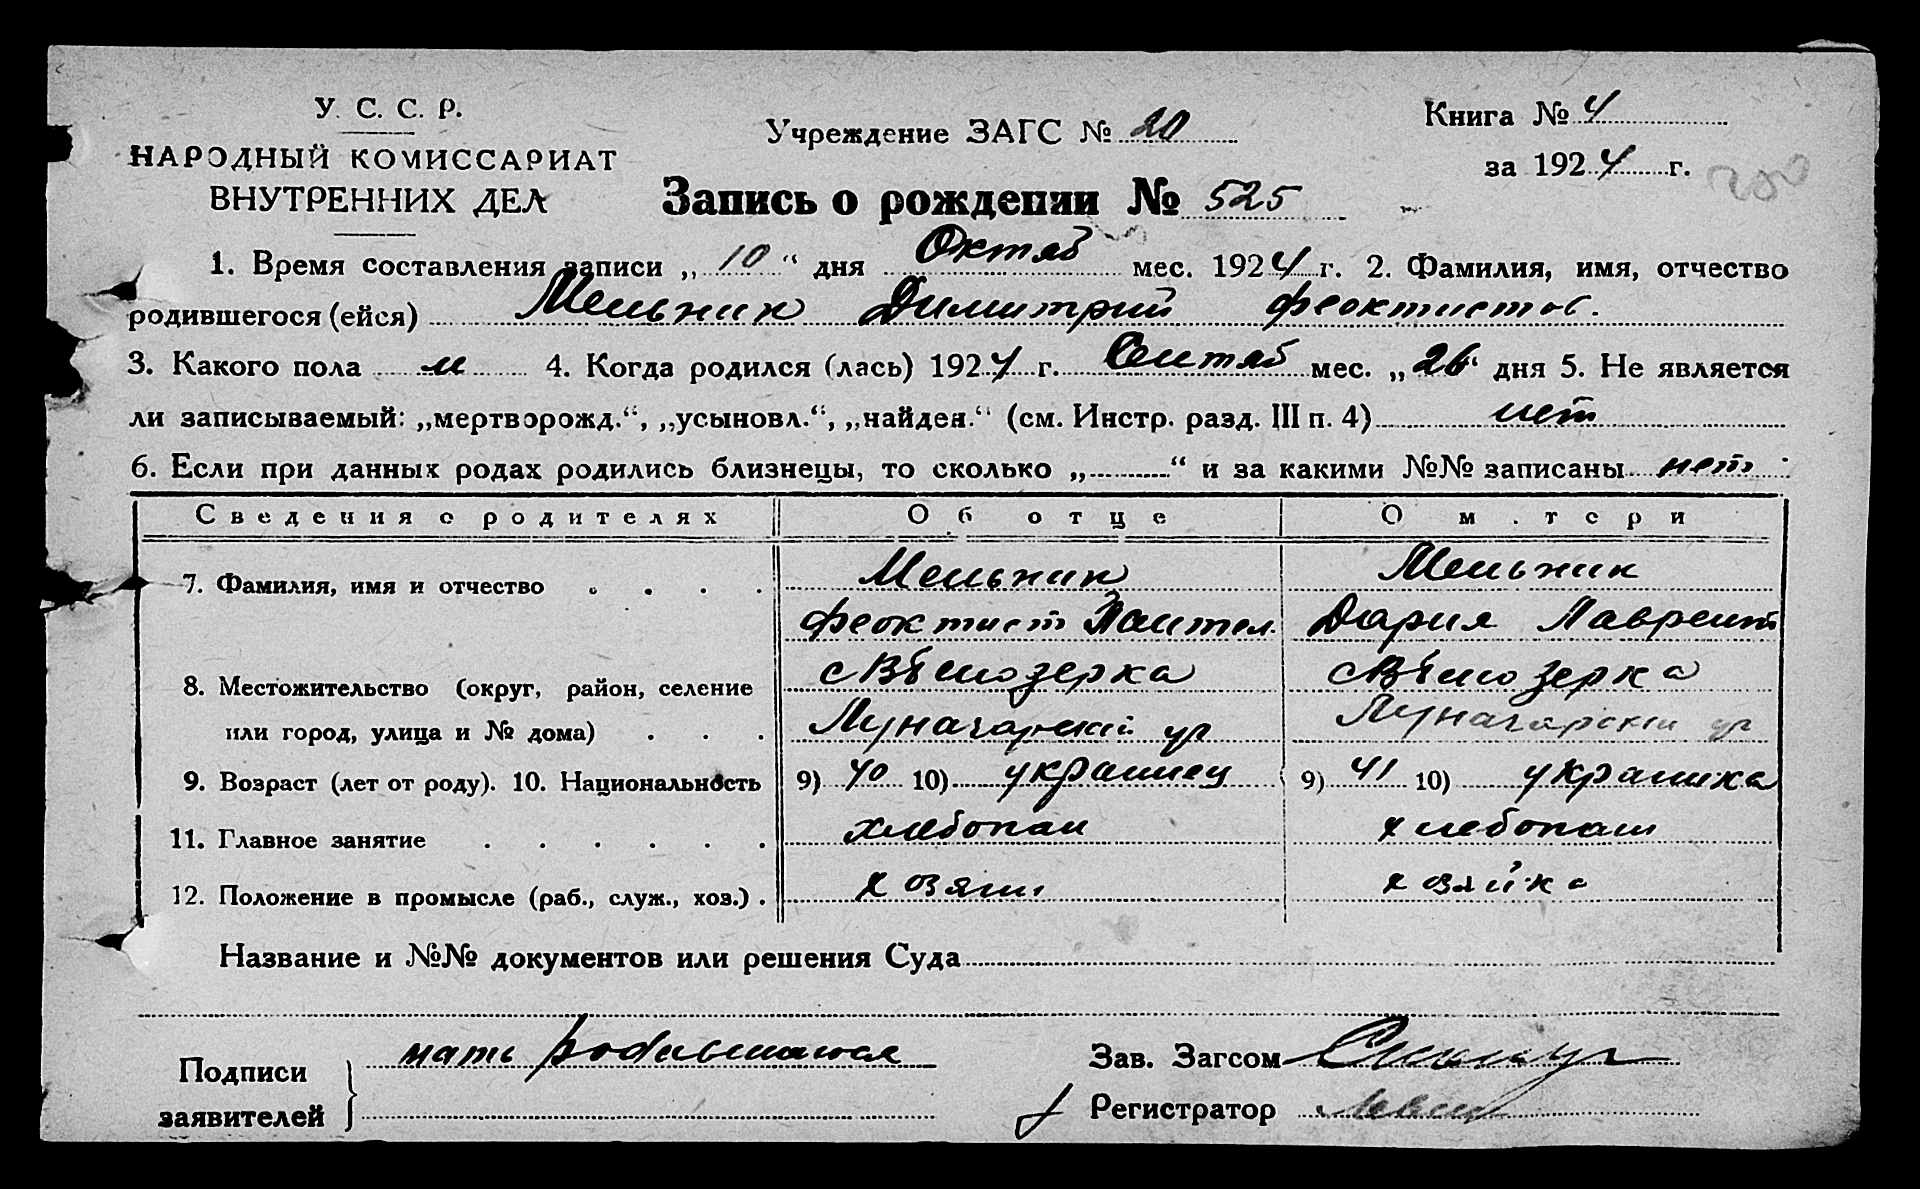 У. С. С. Р.
НАРОДНЫЙ КОМИССАРИАТ
ВНУТРЕННИХ ДЕЛ
Учреждение ЗАГС № 20
Книга № 4
за 1924 г.
Запись о рождении № 525
1. Время составления записи „10“ дня Октяб мес. 1924 г. 2. Фамилия, имя, отчество
родившегося (ейся) Мельник Димитрий Феоктистов.
3. Какого пола м 4. Когда родился (лась) 1924 г. Сентяб мес. „26“ дня 5. Не является
ли записываемый: „мертворожд.“, „усыновл.“, „найден.“ (см. Инстр. разд. III п. 4) нет
6. Если при данных родах родились близнецы, то сколько „..........“ и за какими №№ записаны нет
Сведения о родителях Об отце О м.тери
7. Фамилия, имя и отчество . . . . Мельник Мельник
Феоктист Пантел. Дария Лаврент
8. Местожительство (округ, район, селение с Белозерка с Белозерка
или город, улица и № дома) . . . Луначарский ул Луначарский ул
9. Возраст (лет от роду). 10. Национальность 9) 40 10) украинец 9) 41 10) украинка
11. Главное занятие . . . . . . хлебопаш хлебопаш
12. Положение в промысле (раб., служ., хоз.) . хозяин хозяйка
Название и №№ документов или решения Суда
Подписи
заявителей
мать
Зав. Загсом
Регистратор